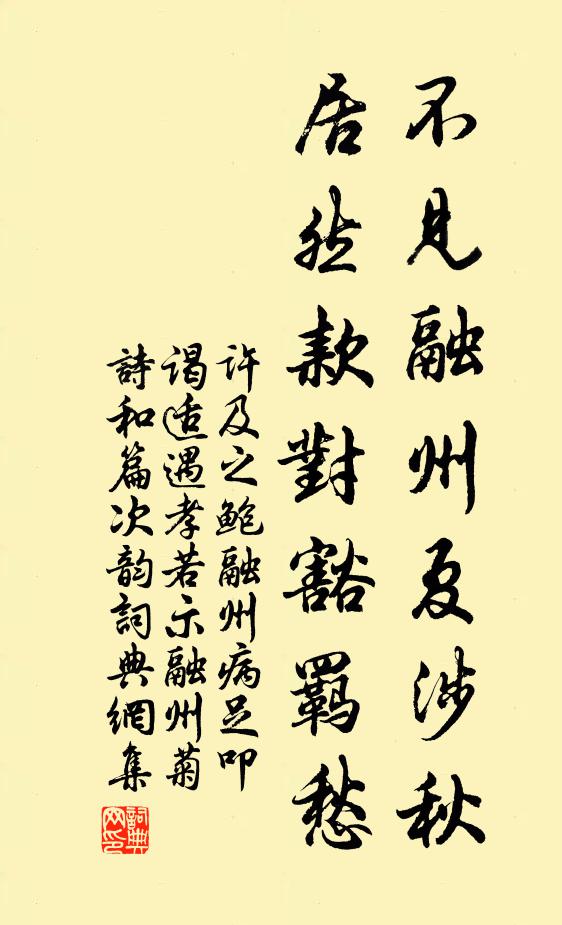 不見融州夏涉秋
居然款對豁羈愁
許及之鮑融州病足叩
謁适遇孝若示融州菊
詩和篇次韵詞典網集
詞典
网印